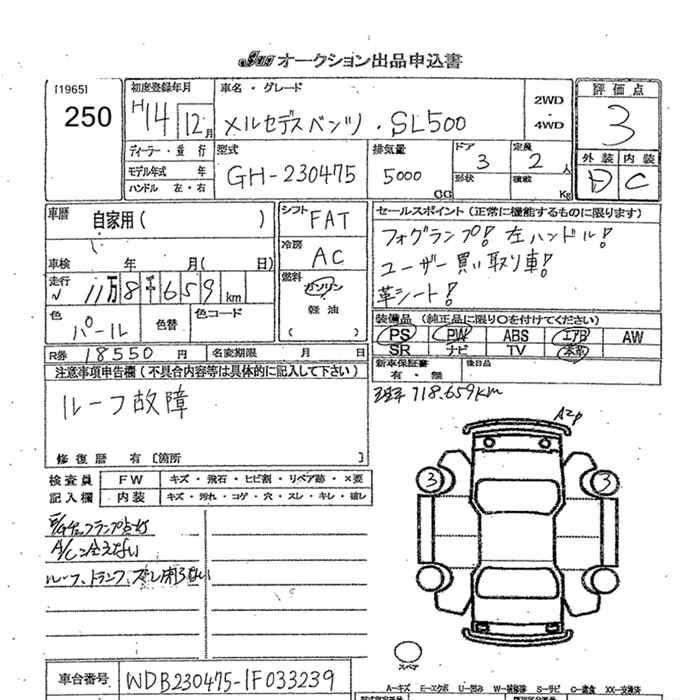 オークション出品申込書
[1965]
250
初度登録年月
H14 12月
車名・グレード
メルセデスベンツ・SL500
2WD
・
4WD
評価点
3
外装 内装
D C
ディーラー・並行
モデル年式 年
ハンドル 左・右
型式
GH-230475
排気量
5000
CC
ドア
3
形状
定員
2人
積載
Kg
車歴
自家用( )
シフト
FAT
セールスポイント(正常に機能するものに限ります)
フォグランプ! 左ハンドル!
ユーザー買い取り車!
革シート!
車検 年 月( 日)
冷房
AC
走行
11万8千659km
燃料
ガソリン
軽油
( )
色
パール
色替
色コード
装備品(純正品に限り○を付けてください)
PS PW ABS エアB AW
SR ナビ TV 本革
R券 18550円
名変期限 月 日
新車保証書
有・無
後日品
注意事項申告欄(不具合内容等は具体的に記入して下さい)
ルーフ故障
修復歴 有〔箇所 〕
118.659km
A2P
検査員
記入欄
FW キズ・飛石・ヒビ割・リペア跡・X要
内装 キズ・汚れ・コゲ・穴・スレ・キレ・破レ
A/C冷えない
3 3
スペア
車台番号 WDB230475-1F033239
A-キズ E-エクボ U-凹み W-補修跡 S-サビ C-腐食 X-要交換 XX-交換済